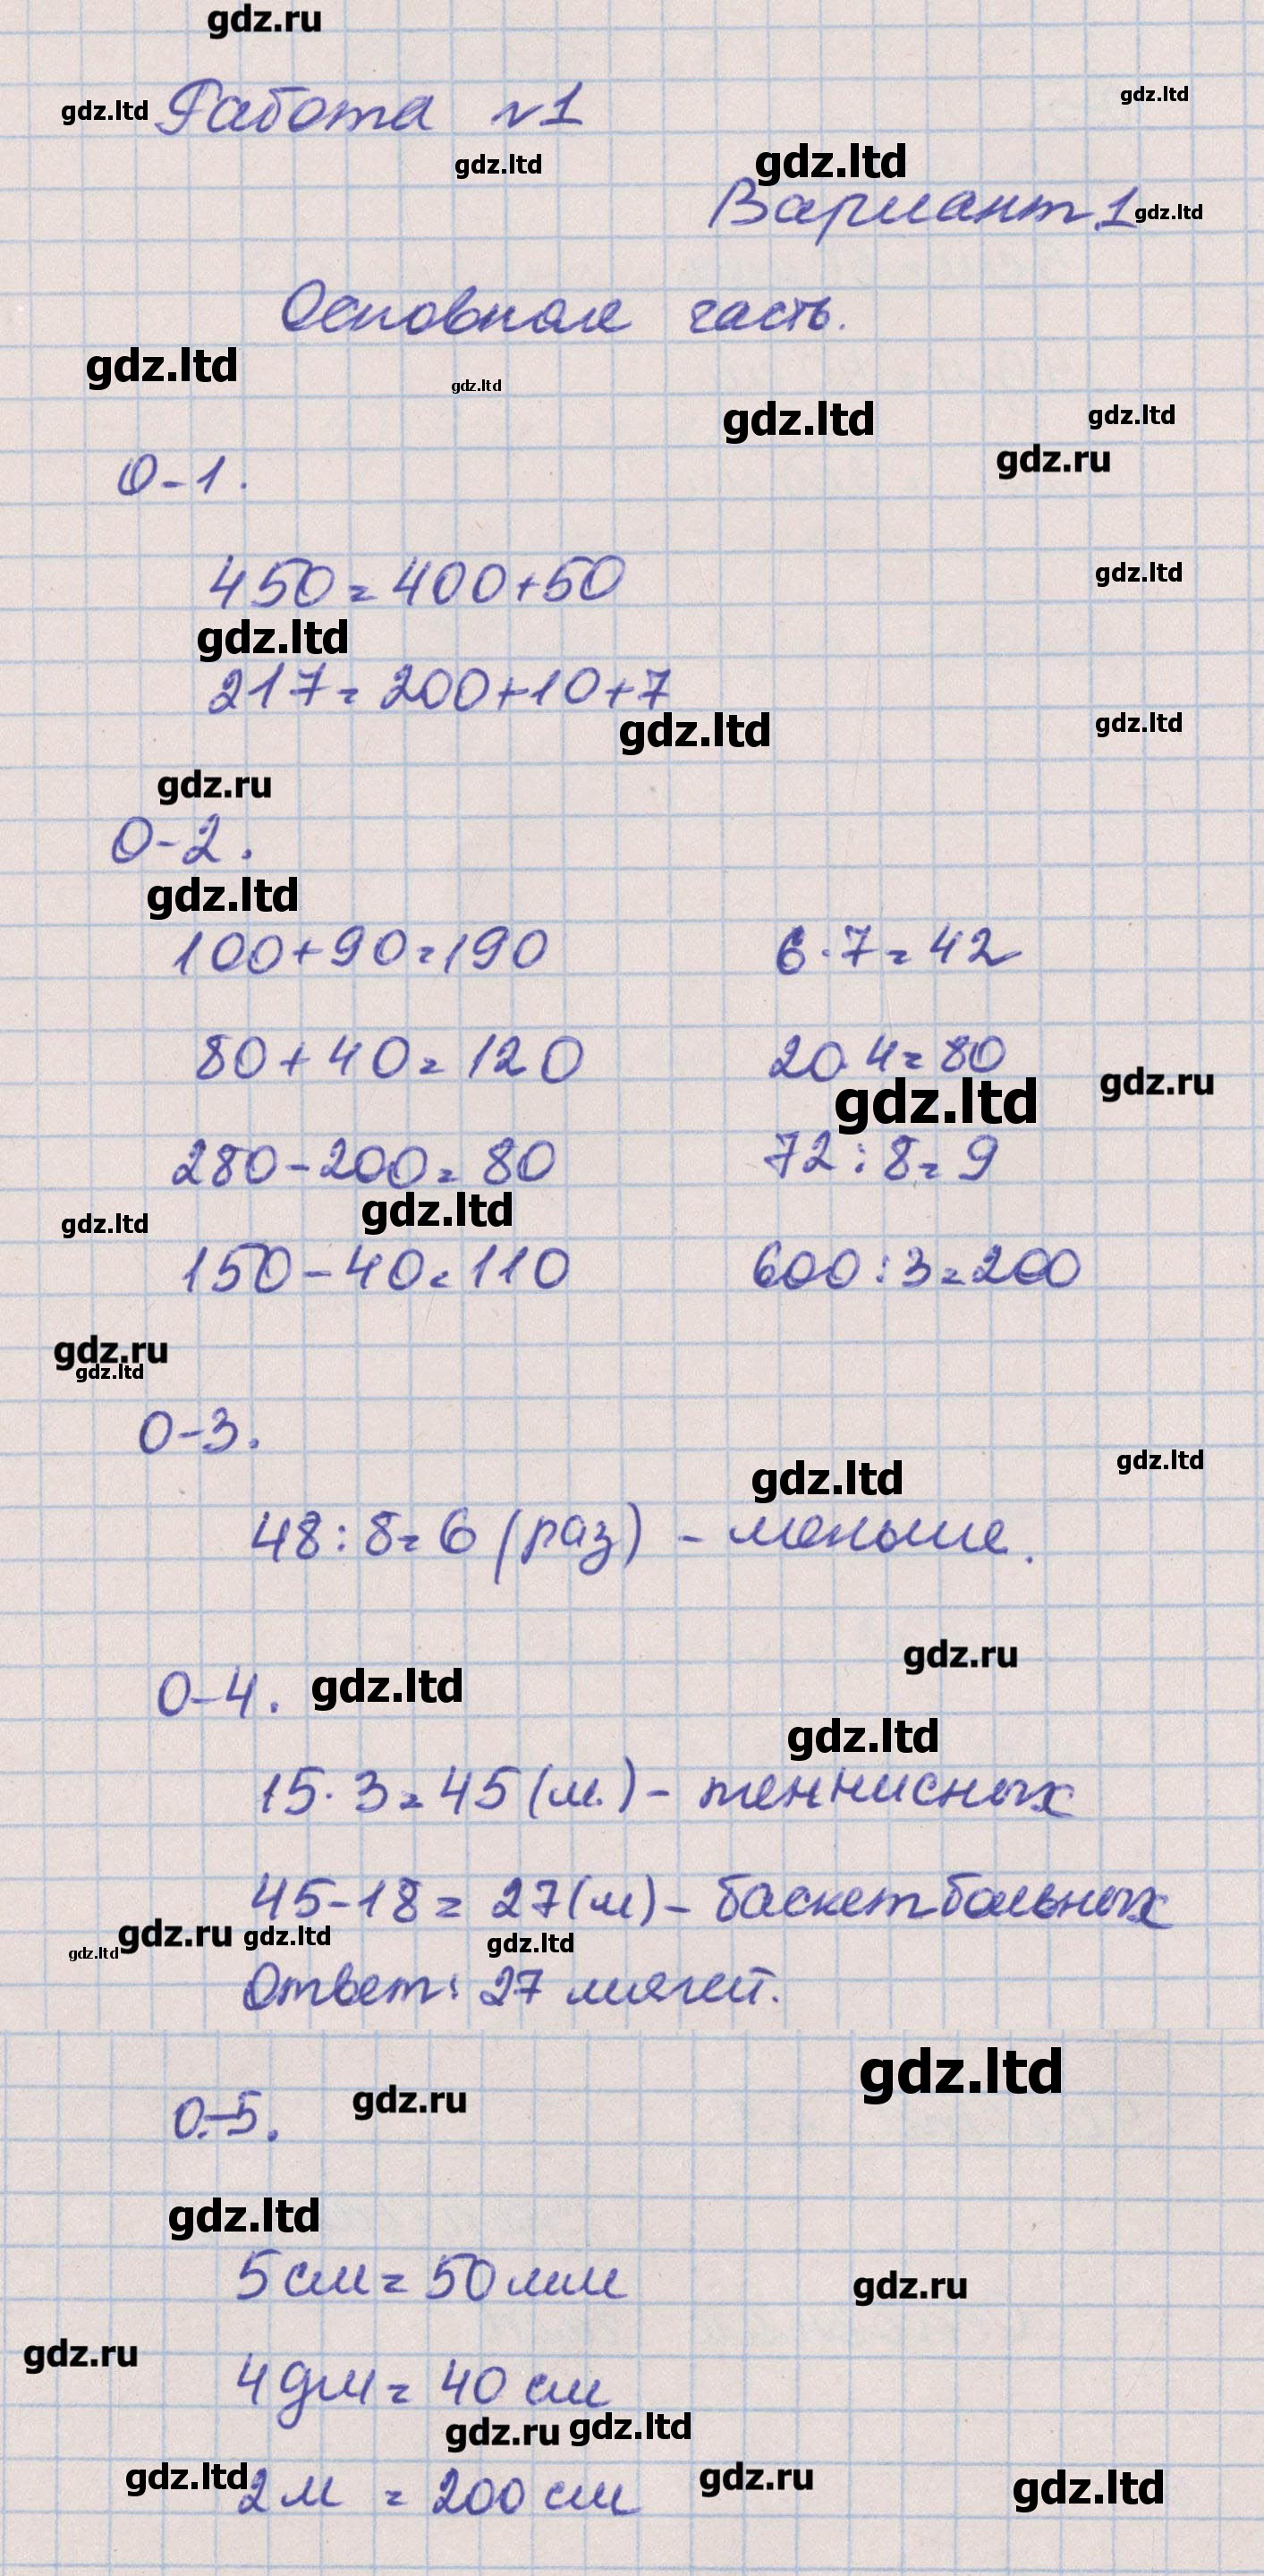 gdz.ru
gdz.ltd Работа №1 gdz.ltd
gdz.ltd gdz.ltd
Вариант 1 gdz.ltd
Основная часть.
gdz.ltd gdz.ltd
gdz.ltd gdz.ltd
gdz.ru
О-1.
450=400+50 gdz.ltd
gdz.ltd
217=200+10+7
gdz.ltd gdz.ltd
gdz.ru
О-2.
gdz.ltd
100+90=190 6·7=42
80+40=120 20·4=80
gdz.ltd gdz.ru
280-200=80 72:8=9
gdz.ltd gdz.ltd
150-40=110 600:3=200
gdz.ru
gdz.ltd
О-3.
gdz.ltd gdz.ltd
48:8=6 (раз) - меньше.
gdz.ru
О-4. gdz.ltd
gdz.ltd
15·3=45 (м.) - теннисных
45-18=27(м) - баскетбольных
gdz.ltd gdz.ru gdz.ltd gdz.ltd
Ответ: 27 мячей.
gdz.ltd
О.-5. gdz.ru
gdz.ltd
5 см = 50 мм gdz.ru
gdz.ru
4 дм = 40 см
gdz.ru gdz.ltd
gdz.ltd 2 м = 200 см gdz.ru gdz.ltd